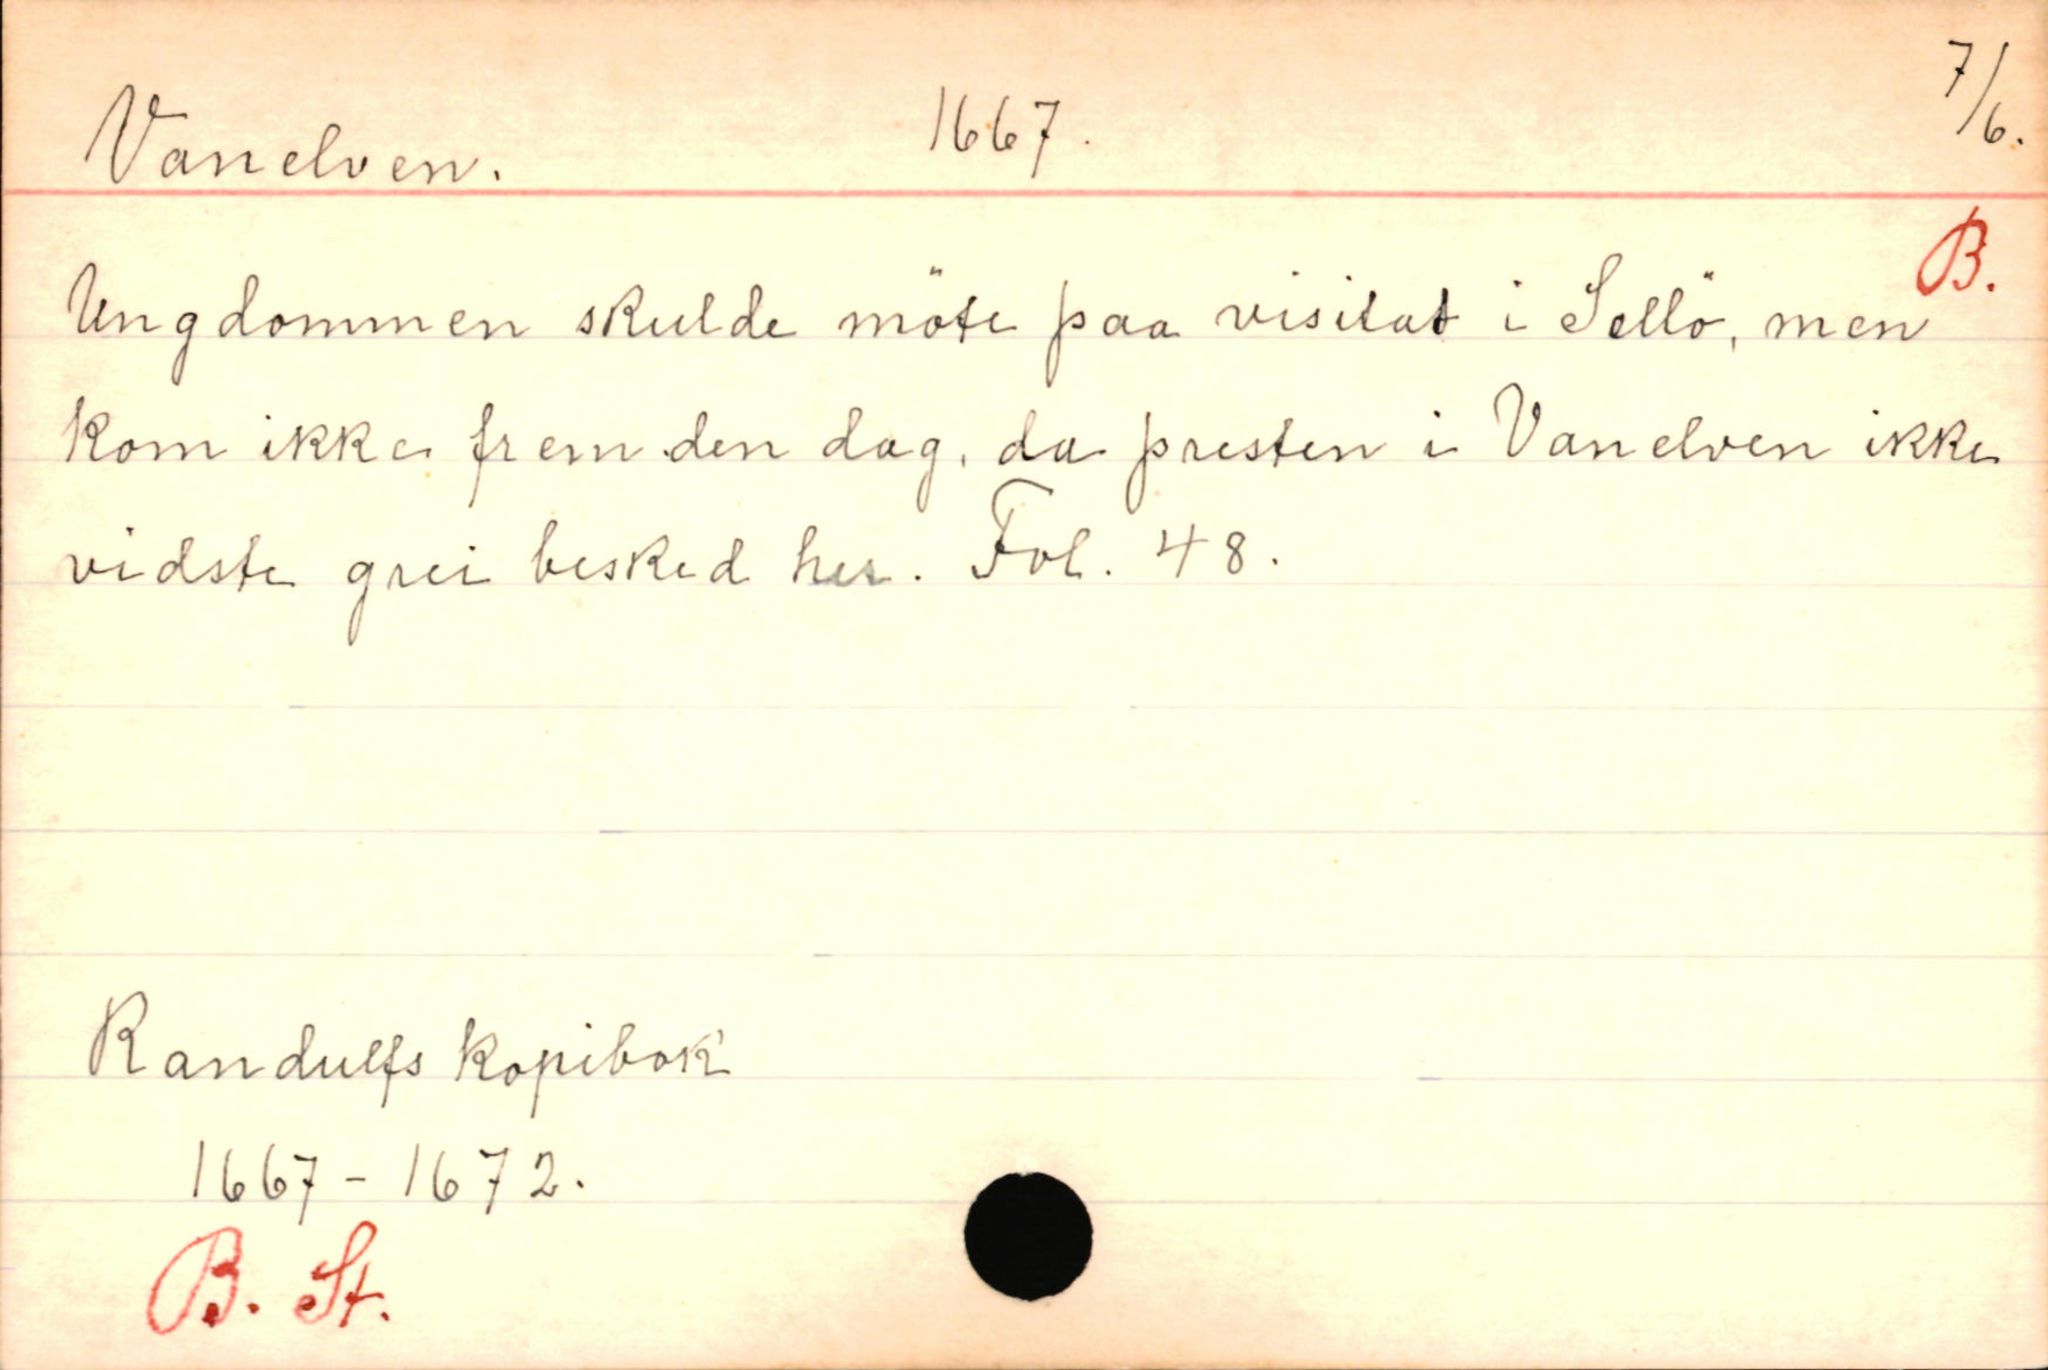 Vanelven. 1667. 7/6.
B.
Ungdommen skulde möte paa visitat i Sellö, men
kom ikke frem den dag, da presten i Vanelven ikke
vidste grei besked her. Fol. 48.
Randulfs kopibok
1667-1672.
B. St.